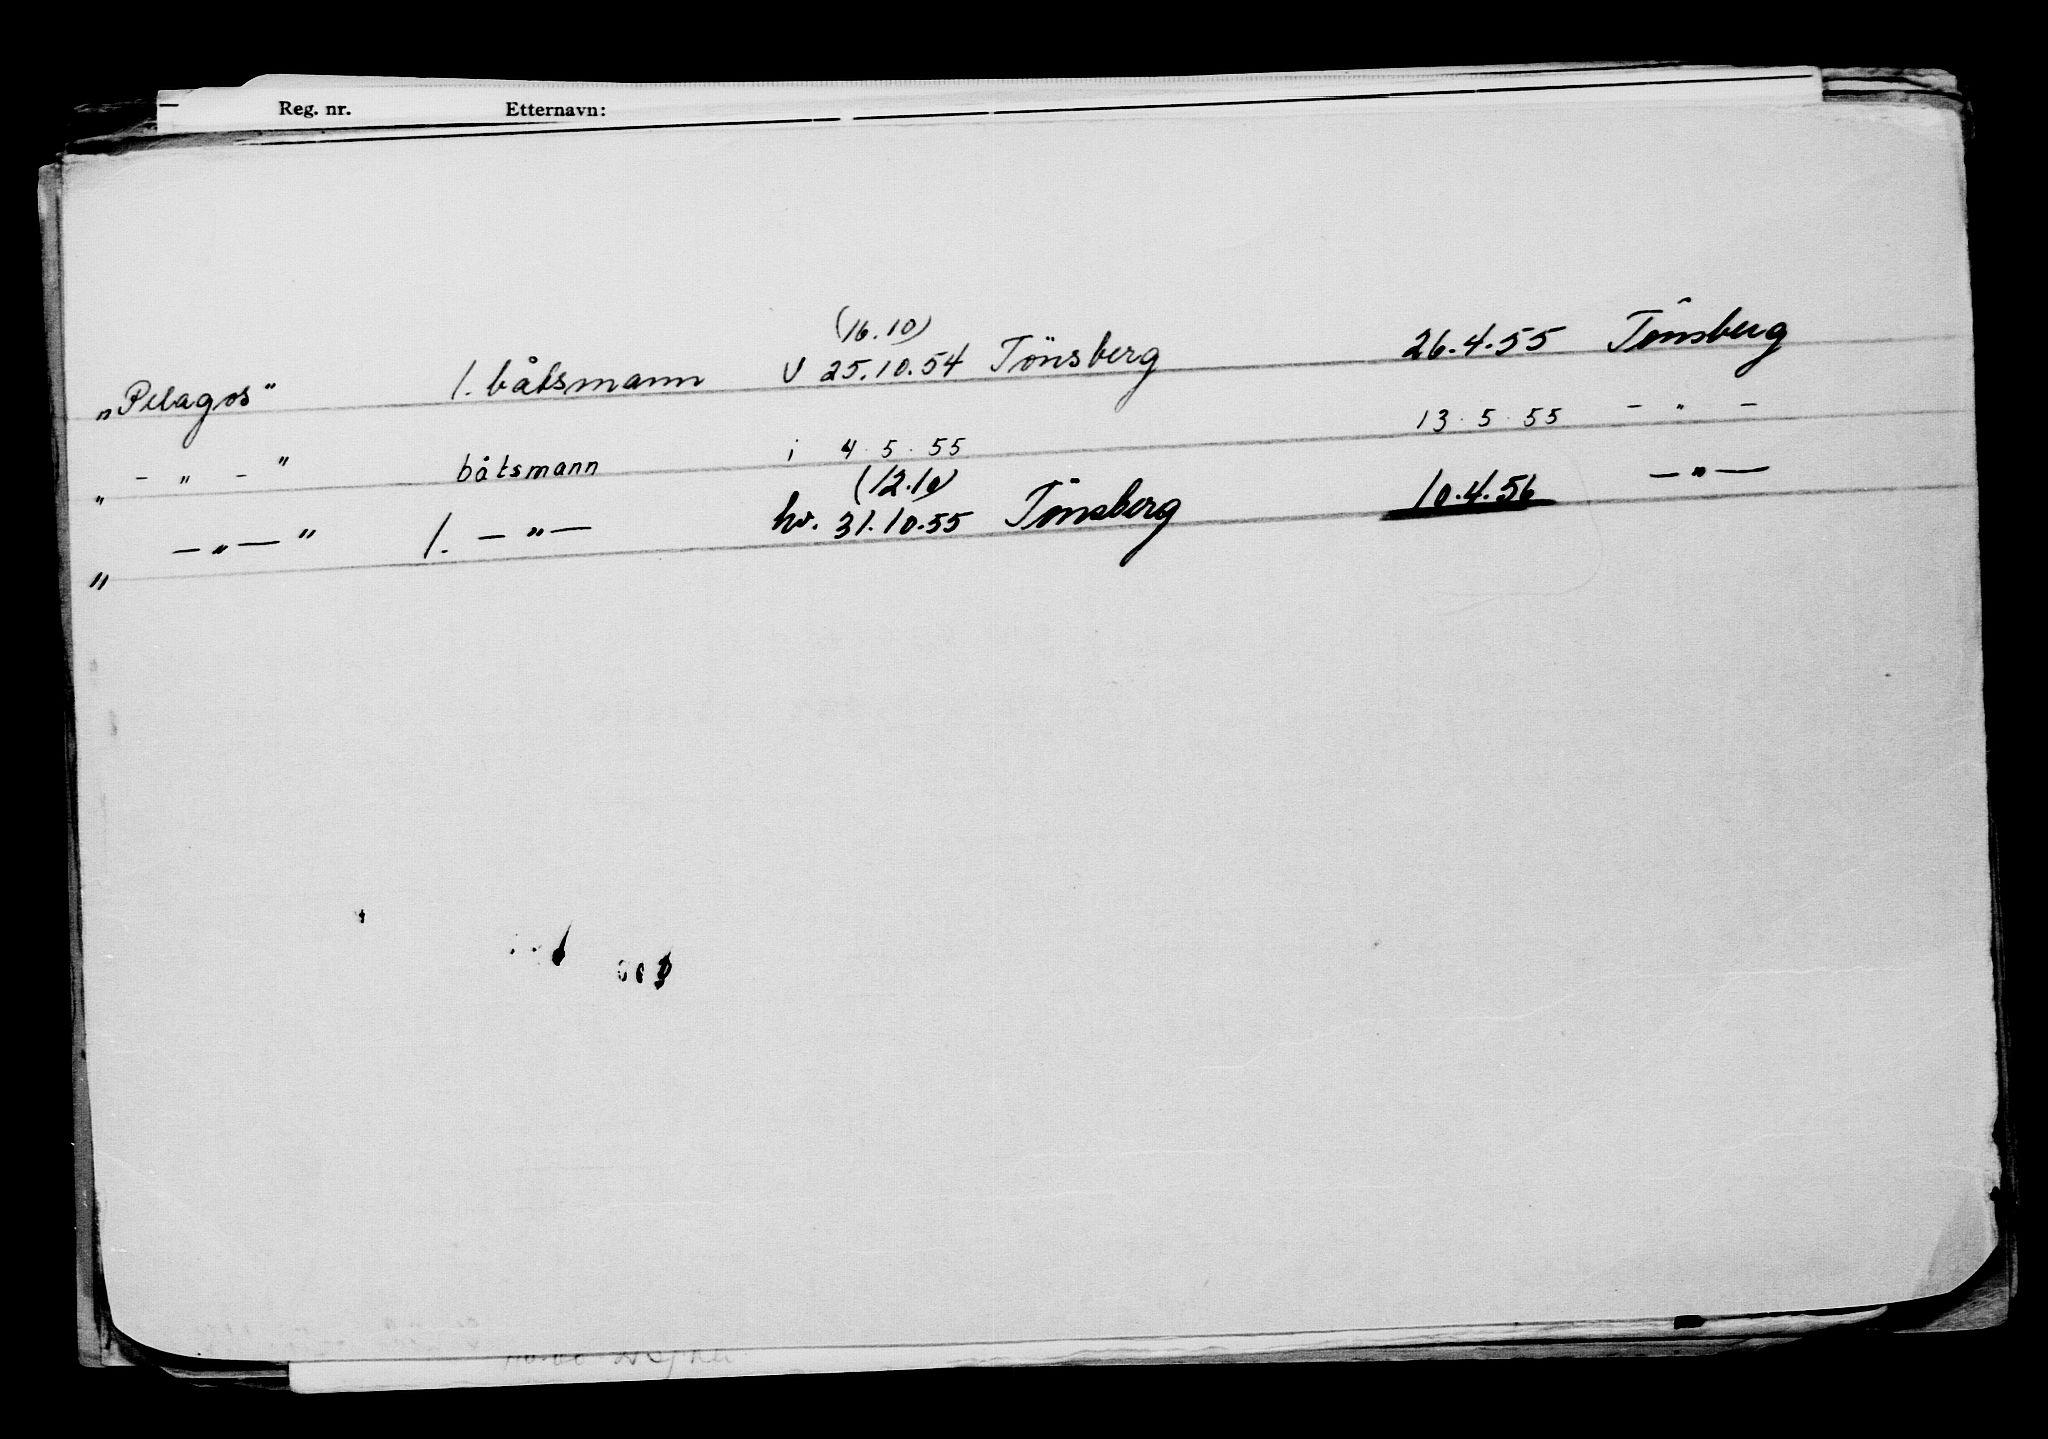 Reg. nr. Etternavn:
(16.10)
„Pelagos" 1. båtsmann v 25.10.54 Tönsberg 26.4.55 Tönsberg
„ - „ - " båtsmann i 4.5.55 13.5.55 - „ -
(12.10)
„ - „ - " 1. - „ - hv. 31.10.55 Tönsberg 10.4.56 - „ -